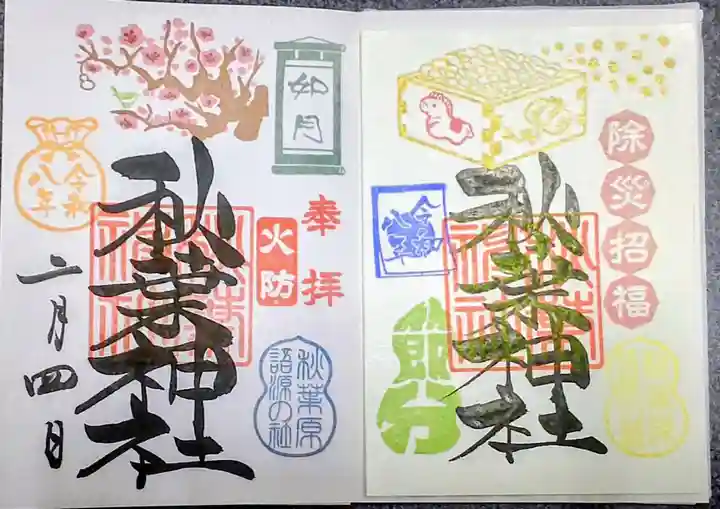 奉拝
如月
火防
秋葉神社
令和八年
二月四日
秋葉原
語源の社
除災招福
秋葉神社
令和八年
節分